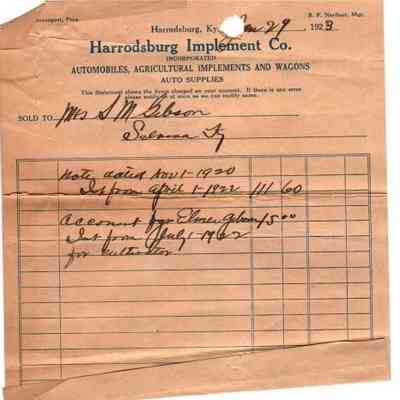 Davenport, Pres. B. F. Norfleet, Mgr.
Harrodsburg, Ky., Jan 29 1923
Harrodsburg Implement Co.
INCORPORATED
AUTOMOBILES, AGRICULTURAL IMPLEMENTS AND WAGONS
AUTO SUPPLIES
This Statement shows the items charged on your account. If there is any error
please notify us at once so we can rectify same.
SOLD TO Mrs S M Gibson
Salvisa Ky
Note dated Nov 1-1920
Int from April 1-1922 111 60
Account Elmer Gibson 15 00
Int from July 1-1922
for cultivator